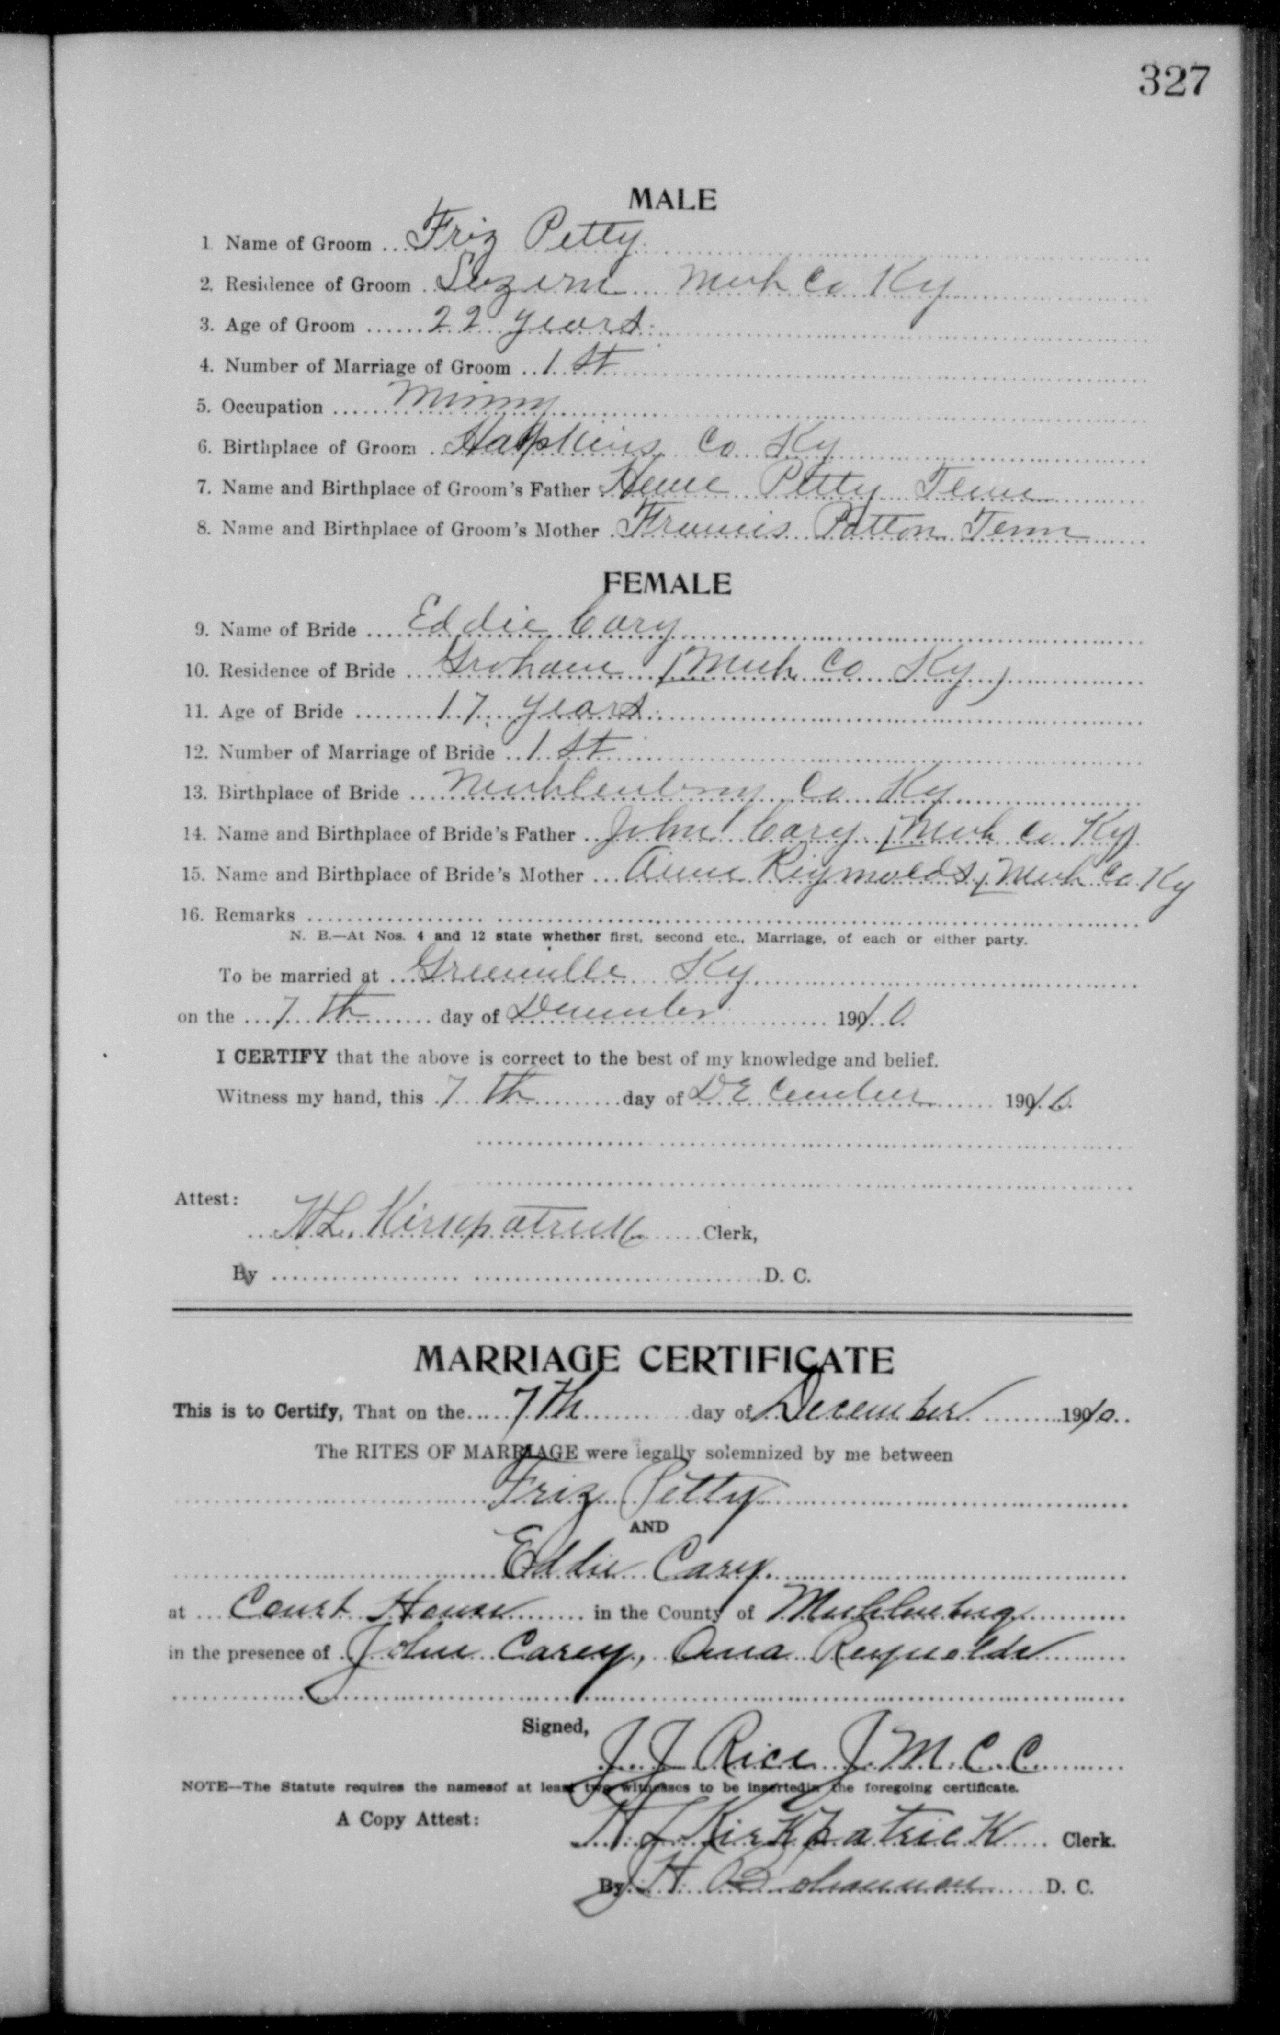 327
MALE
1 Name of Groom Friz Petty
2. Residence of Groom Luzern Muh Co Ky
3. Age of Groom 22 years
4. Number of Marriage of Groom 1 St
5. Occupation Mining
6. Birthplace of Groom Hopkins Co Ky
7. Name and Birthplace of Groom's Father Petty Tenn
8. Name and Birthplace of Groom's Mother Francis Patton Tenn
FEMALE
9. Name of Bride Eddie Cary
10. Residence of Bride Graham (Muh Co Ky)
11. Age of Bride 17 years
12. Number of Marriage of Bride 1 St
13. Birthplace of Bride Muhlenberg Co Ky
14. Name and Birthplace of Bride's Father John Cary (Muh Co Ky)
15. Name and Birthplace of Bride's Mother Reynolds (Muh Co Ky
16. Remarks
N. B.—At Nos. 4 and 12 state whether first, second etc., Marriage, of each or either party.
To be married at Greenville Ky
on the 7 th day of December 1910
I CERTIFY that the above is correct to the best of my knowledge and belief.
Witness my hand, this 7 th day of December 1910
Attest:
H.L. Kirkpatrick Clerk,
By D. C.
MARRIAGE CERTIFICATE
This is to Certify, That on the 7th day of December 1910
The RITES OF MARRIAGE were legally solemnized by me between
Friz Petty
AND
Eddie Carey
at Court House in the County of Muhlenberg
in the presence of John Carey, Reynolds
Signed,
J J Rice J. M. C. C.
NOTE—The Statute requires the namesof at least two witnesses to be insertedin the foregoing certificate.
A Copy Attest:
H L Kirkpatrick Clerk.
By H Bohannon D. C.